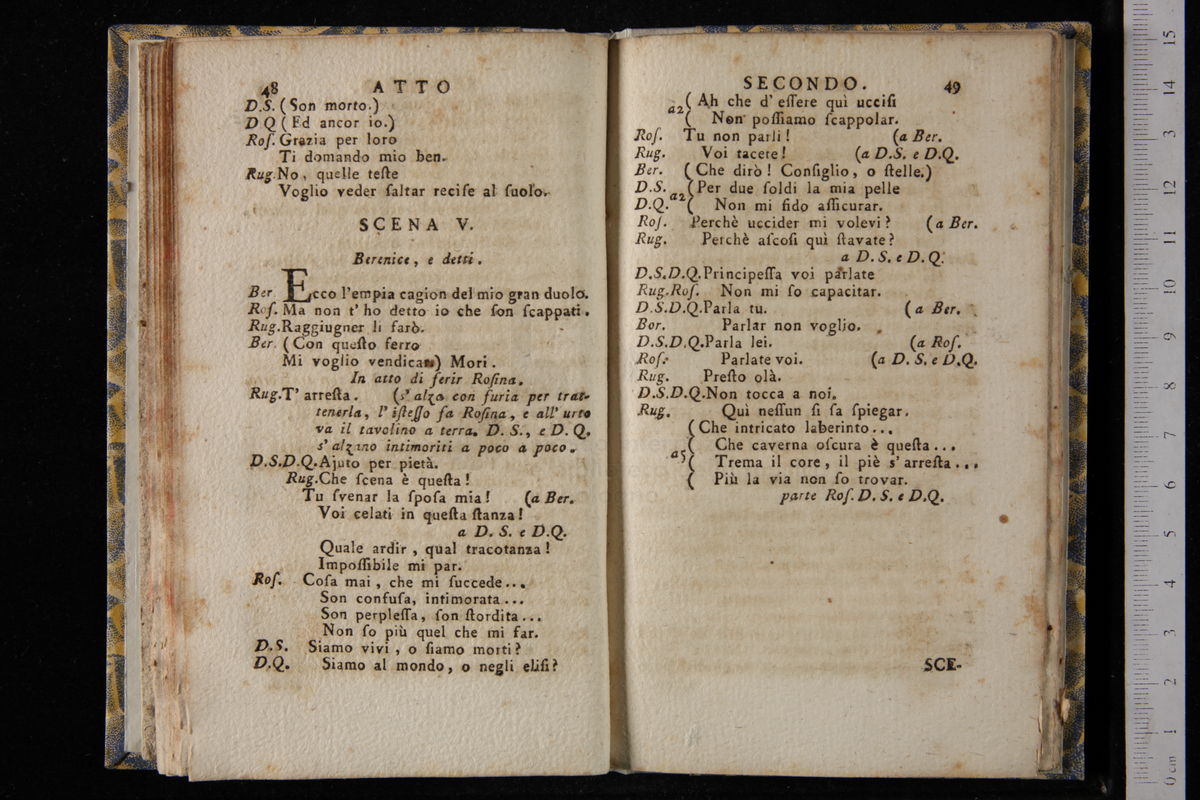 48 ATTO
D.S. (Son morto.)
D Q (Ed ancor io.)
Roſ. Grazia per loro
Ti domando mio ben.
Rug. No, quelle teſte
Voglio veder ſaltar reciſe al ſuolo.
SCENA V.
Berenice, e detti.
Ber Ecco l'empia cagion del mio gran duolo.
Roſ. Ma non t'ho detto io che ſon ſcappati.
Rug. Raggiugner li farò.
Ber. (Con queſto ferro
Mi voglio vendicar) Mori.
In atto di ferir Roſina.
Rug. T' arreſta. (s' alza con furia per trat-
tenerla, l' iſteſſo fa Roſina, e all' urto
va il tavolino a terra. D. S., e D. Q.
s' alzano intimoriti a poco a poco.
D.S.D.Q. Ajuto per pietà.
Rug. Che ſcena è queſta!
Tu ſvenar la ſpoſa mia! (a Ber.
Voi celati in queſta ſtanza!
a D. S. e D.Q.
Quale ardir, qual tracotanza!
Impoſſibile mi par.
Roſ. Coſa mai, che mi ſuccede...
Son confuſa, intimorata...
Son perpleſſa, ſon ſtordita...
Non ſo più quel che mi far.
D.S. Siamo vivi, o ſiamo morti?
D.Q. Siamo al mondo, o negli eliſi?
SECONDO. 49
a2 ( Ah che d' eſſere quì ucciſi
( Non poſſiamo ſcappolar.
Roſ. Tu non parli! (a Ber.
Rug. Voi tacete! (a D.S. e D.Q.
Ber. (Che dirò! Conſiglio, o ſtelle.)
D.S. (Per due ſoldi la mia pelle
D.Q. a2 ( Non mi fido aſſicurar.
Roſ. Perchè uccider mi volevi? (a Ber.
Rug. Perchè aſcoſi quì ſtavate?
a D. S. e D. Q.
D.S.D.Q. Principeſſa voi parlate
Rug. Roſ. Non mi ſo capacitar.
D.S.D.Q. Parla tu. (a Ber.
Bor. Parlar non voglio.
D.S.D.Q. Parla lei. (a Roſ.
Roſ. Parlate voi. (a D. S. e D.Q.
Rug. Preſto olà.
D.S.D.Q. Non tocca a noi.
Rug. Quì neſſun ſi ſa ſpiegar.
(Che intricato laberinto...
( Che caverna oſcura è queſta...
a5 ( Trema il core, il piè s' arreſta...
( Più la via non ſo trovar.
parte Roſ. D. S. e D.Q.
SCE-
0 cm 1 2 3 4 5 6 7 8 9 10 11 12 13 14 15